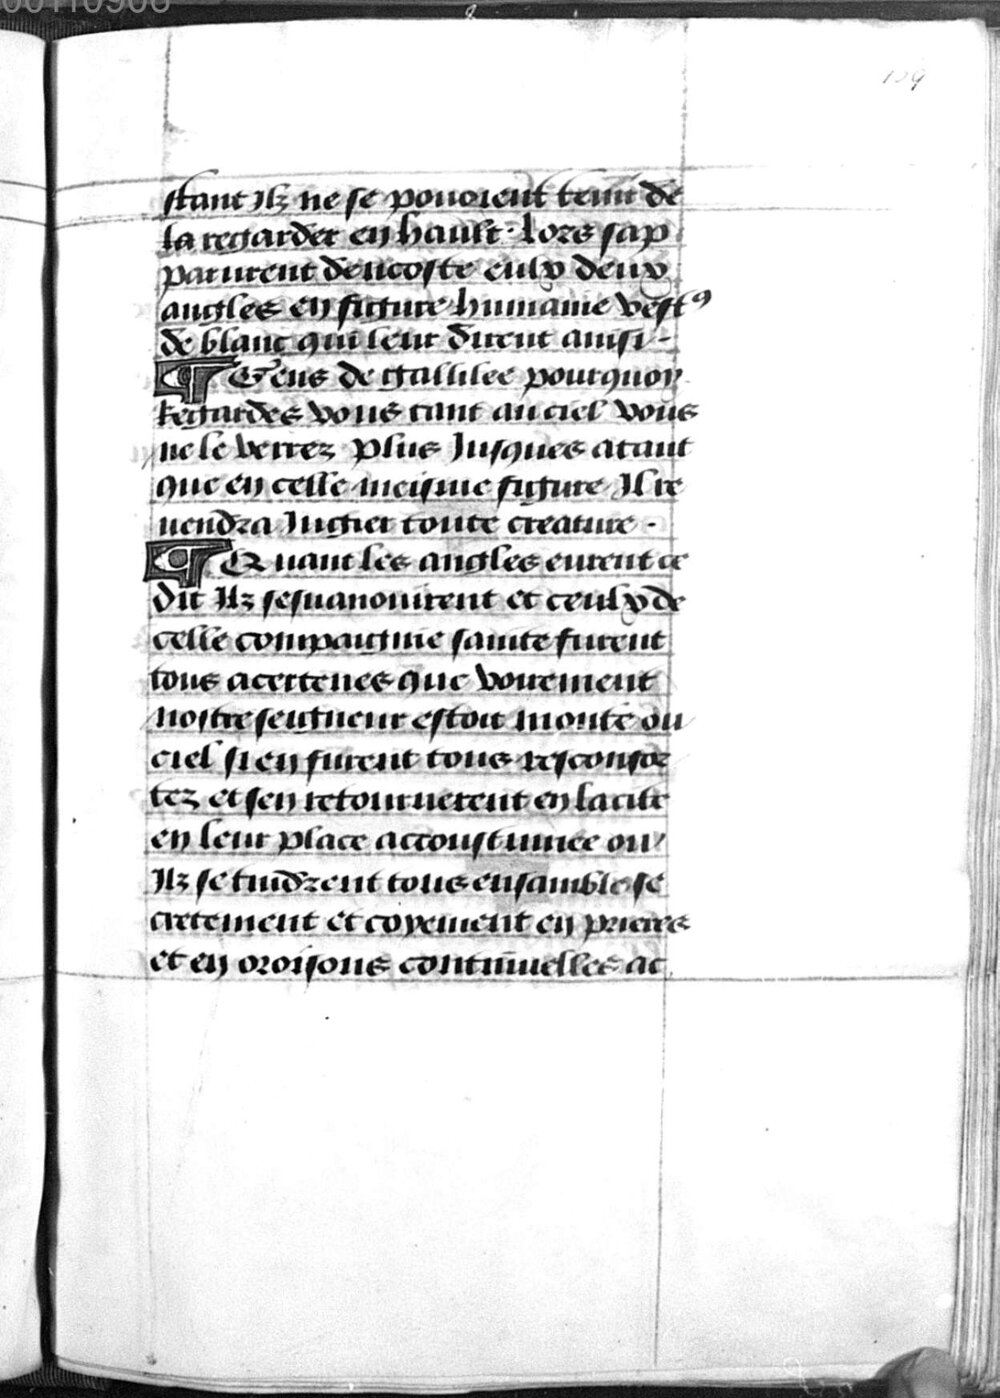 159
stant Ilz ne se pouoient tenir de
la regarder en hault · Lors sap
parurent dencoste eulx deux
angles en figure humaine vestꝯ
de blanc qui leur dirent ainsi -
¶ Gens de gallilee pourquoy
Regardes vous tant au ciel vous
ne le verrez plus Jusques atant
que en celle meisme figure Il re
uendra Jugier toute creature ·
¶ Quant les angles eurent ce
dit Ilz sesuanouirent et ceulx de
celle compaignie sainte furent
tous acertenes que voirement
nostre seigneur estoit monte ou
ciel si en furent tous resconfor
tez et sen retournerent en la cite
en leur place accoustumee ou
Ilz se tindrent tous ensamble se
cretement et coyement en prieres
et en oroisons continuelles ac